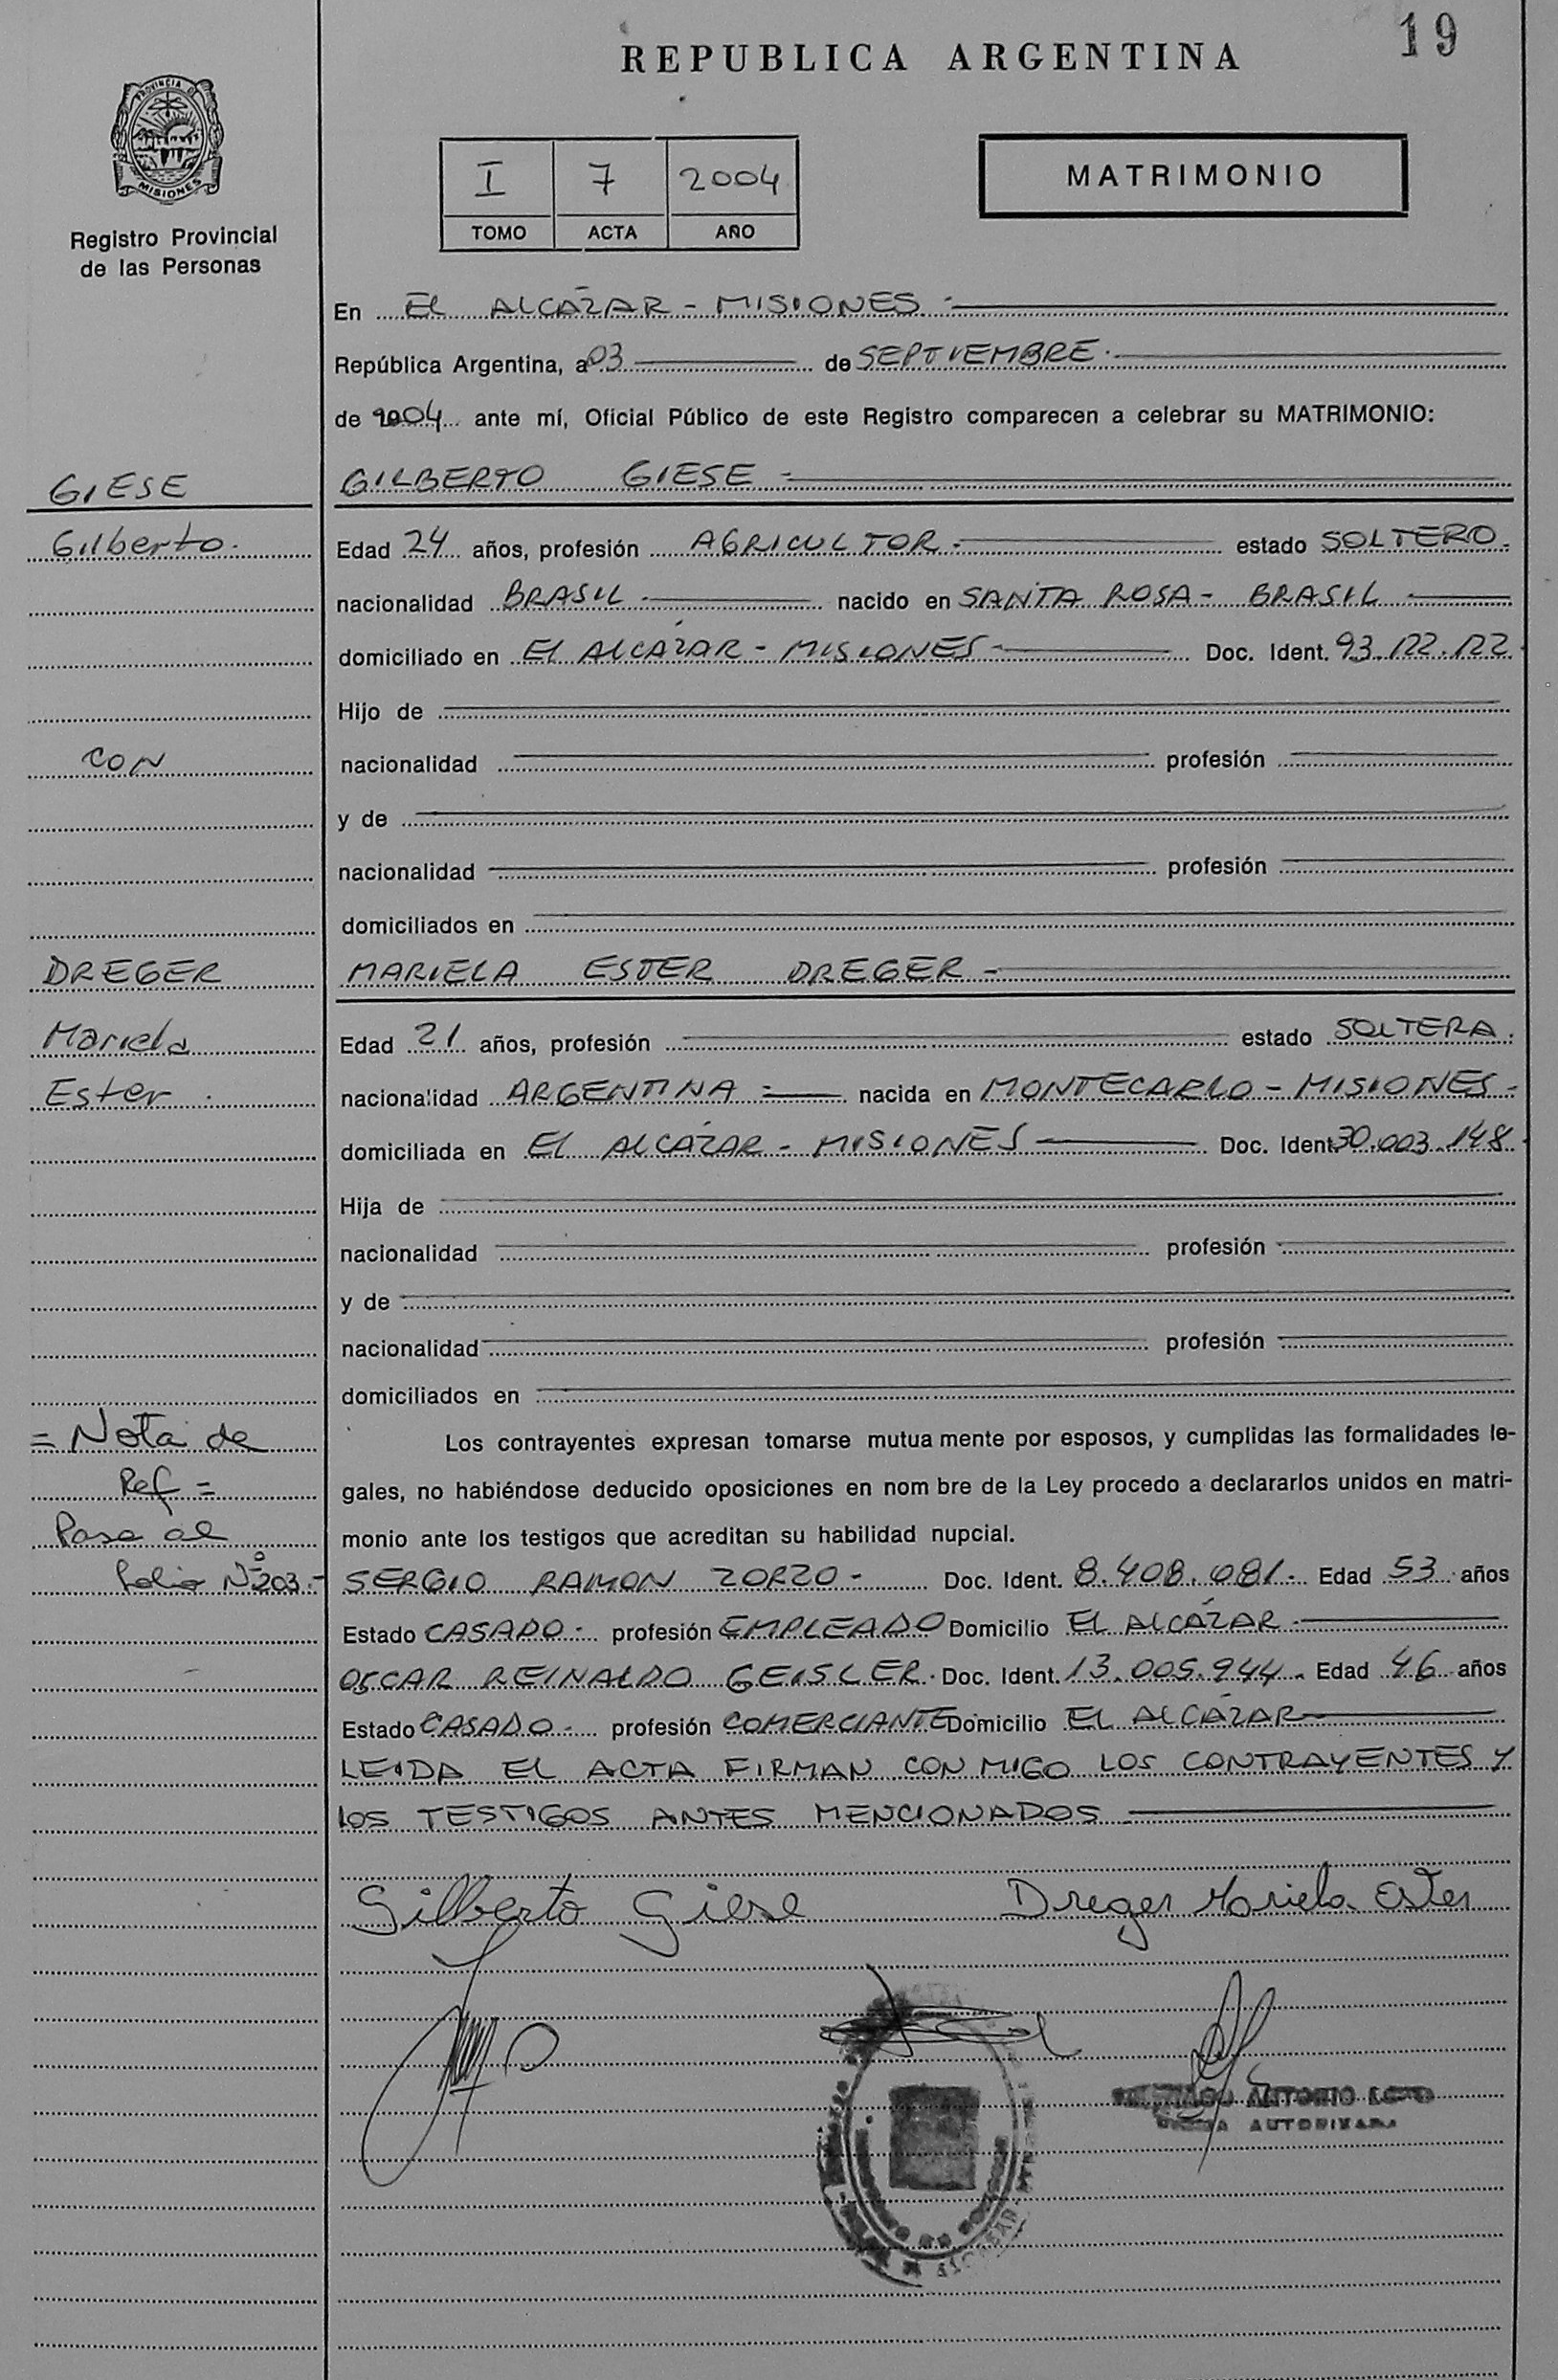 19
REPUBLICA ARGENTINA
PROVINCIA DE
MISIONES
Registro Provincial
de las Personas
I 7 2004
TOMO ACTA AÑO
MATRIMONIO
En EL ALCÁZAR - MISIONES.-
República Argentina, a 03 de SEPTIEMBRE.-
de 2004 ante mí, Oficial Público de este Registro comparecen a celebrar su MATRIMONIO:
GIESE
GILBERTO GIESE -
Gilberto.
Edad 24 años, profesión AGRICULTOR.- estado SOLTERO.
nacionalidad BRASIL.- nacido en SANTA ROSA - BRASIL.-
domiciliado en El AlCÁZAR - MISIONES - Doc. Ident. 93.122.122
Hijo de
CON
nacionalidad profesión
y de
nacionalidad profesión
domiciliados en
DREGER
MARIELA ESTER DREGER -
Mariela
Edad 21 años, profesión estado SOLTERA.
Ester.
nacionalidad ARGENTINA - nacida en MONTECARLO - MISIONES -
domiciliada en El AlCÁZAR - MISIONES - Doc. Ident. 30.003.148.
Hija de
nacionalidad profesión
y de
nacionalidad profesión
domiciliados en
= Nota de
Ref =
Pasa al
folio Nº 203.-
Los contrayentes expresan tomarse mutua mente por esposos, y cumplidas las formalidades le-
gales, no habiéndose deducido oposiciones en nom bre de la Ley procedo a declararlos unidos en matri-
monio ante los testigos que acreditan su habilidad nupcial.
SERGIO RAMON ZORZO - Doc. Ident. 8.408.081. Edad 53 años
Estado CASADO - profesión EMPLEADO Domicilio EL ALCÁZAR -
OSCAR REINALDO GEISLER. Doc. Ident. 13.005.944. Edad 46 años
Estado CASADO - profesión COMERCIANTE Domicilio EL ALCÁZAR
LEIDA EL ACTA FIRMAN CONMIGO LOS CONTRAYENTES Y
lOS TESTIGOS ANTES MENCIONADOS
Gilberto Giese Dreger Mariela Ester
ANTONIO
AUTORIZADA